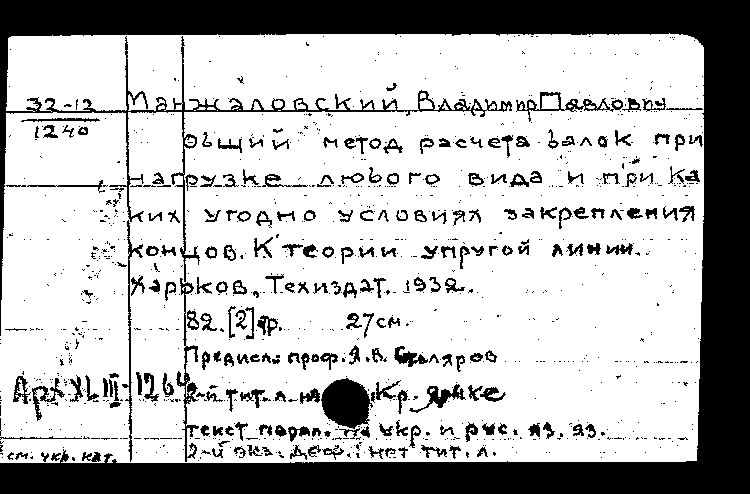 32-12
1240
Манжаловский, Владимир Павлович
Общий метод расчета балок при
нагрузке любого вида и при ка
ких угодно условиях закрепления
концов. К теории упругой линии.
Харьков, Техиздат, 1932.
82.[2]стр. 27см.
Предисл. проф. Я. В. Столяров
Арх XLIII-1264
2-й тит. л. на укр. языке
текст парал. на укр. и рус. яз. яз.
2-й экз. деф.: нет тит. л.
см. укр. кат.